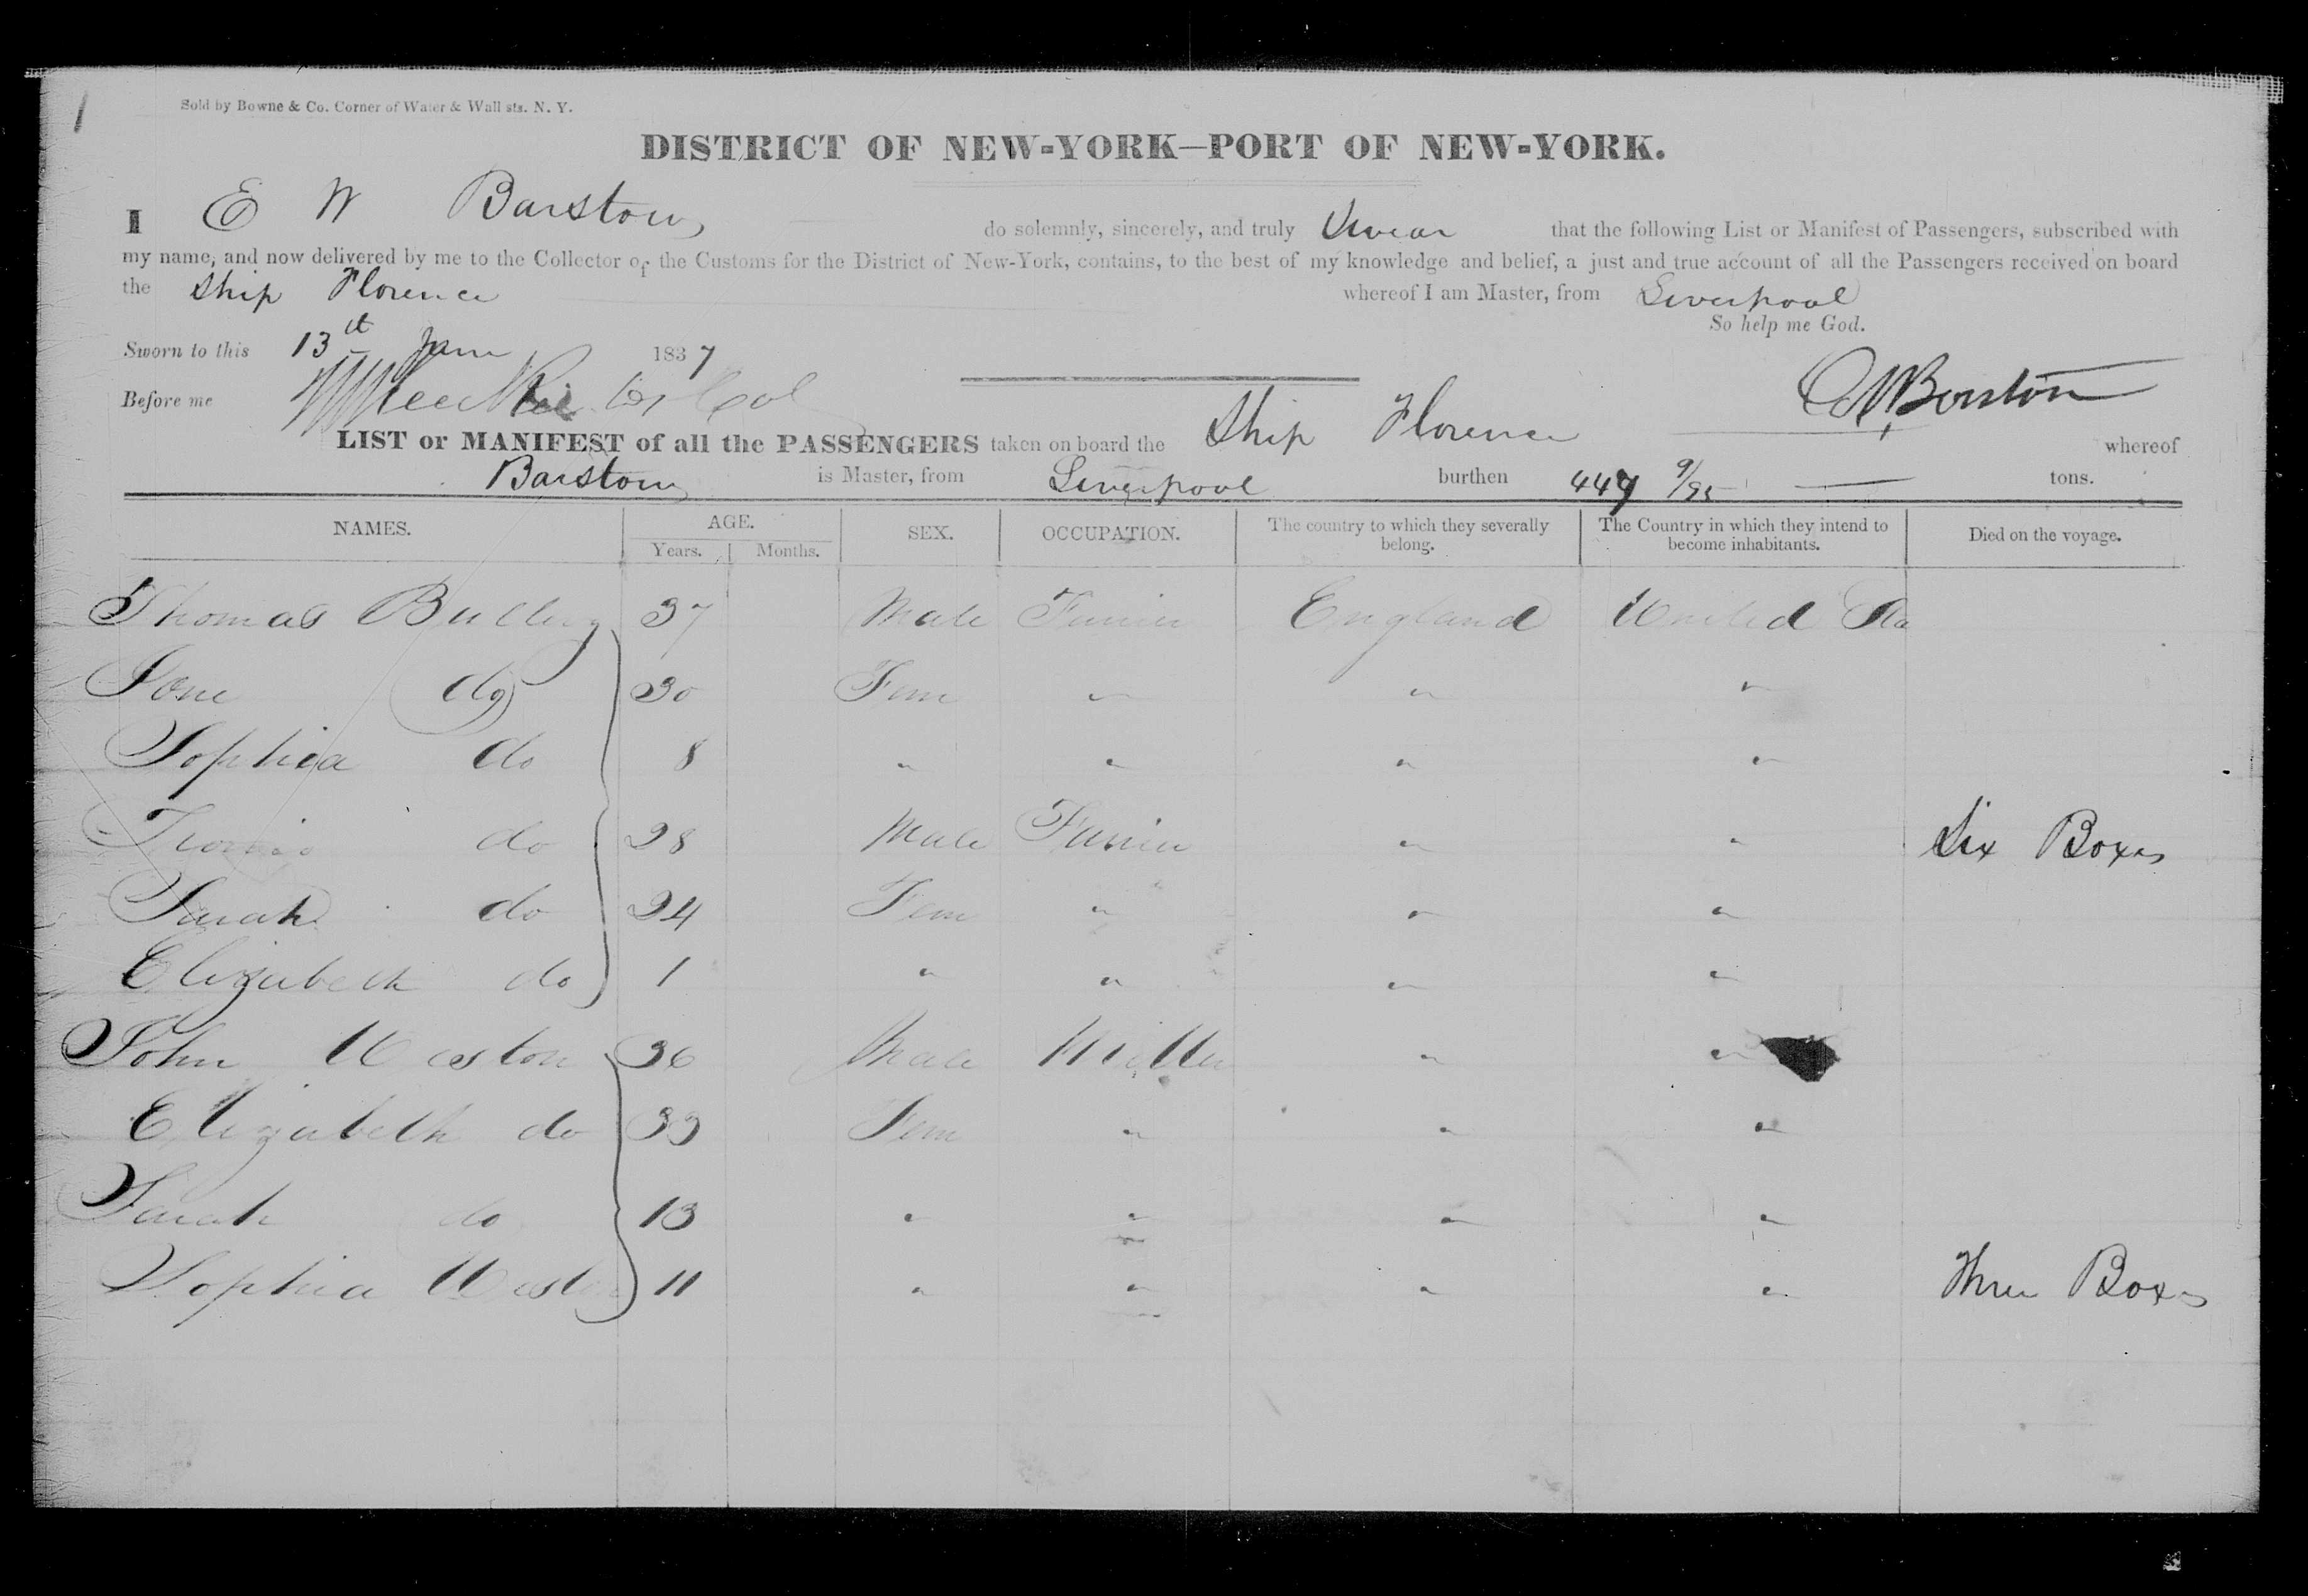 1
Sold by Bowne & Co. Corner of Water & Wall sts. N. Y.
DISTRICT OF NEW-YORK—PORT OF NEW-YORK.
I E W Barstow do solemnly, sincerely, and truly Swear that the following List or Manifest of Passengers, subscribed with
my name, and now delivered by me to the Collector of the Customs for the District of New-York, contains, to the best of my knowledge and belief, a just and true account of all the Passengers received on board
the Ship Florence whereof I am Master, from Liverpool
So help me God.
Sworn to this 13th Jany 1837
Before me Col
E W Barstow
LIST or MANIFEST of all the PASSENGERS taken on board the Ship Florence whereof
Barstow is Master, from Liverpool burthen 447 9/95 tons.
NAMES. AGE. SEX. OCCUPATION. The country to which they severally belong. The Country in which they intend to become inhabitants. Died on the voyage.
Years. Months.
Thomas 37 Male Farmer England United Sta
Jane do 30 Fem " " "
Sophia do 8 " " " "
do 28 Male Farmer " " Six Boxes
Sarah do 24 Fem " " "
Elizabeth do 1 " " " "
John Weston 36 Male Miller " "
Elizabeth do 33 Fem " " "
Sarah do 13 " " " "
Sophia Weston 11 " " " " Three Boxes